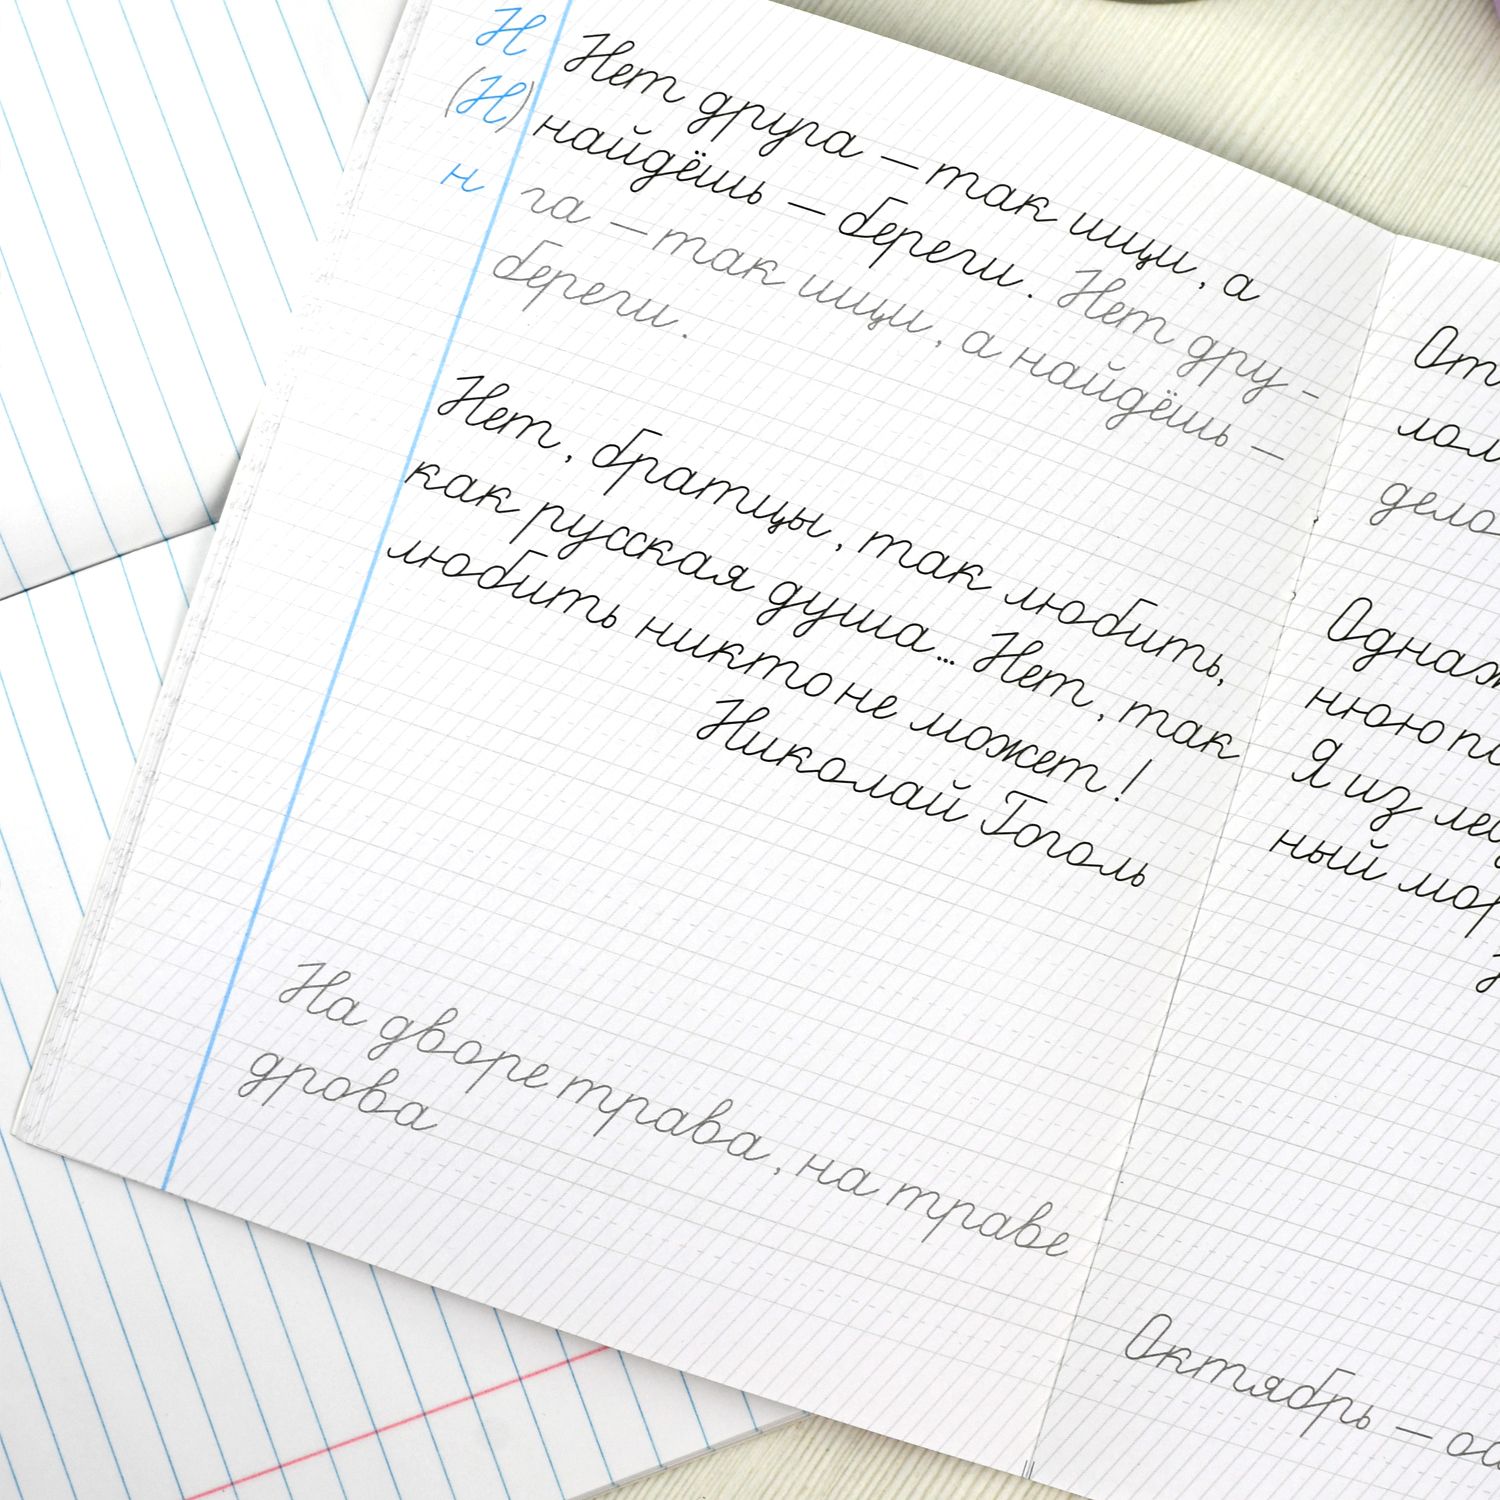 Н
(Н)
н
Нет друга – так ищи, а
найдёшь – береги. Нет дру-
га – так ищи, а найдёшь –
береги.
Нет, братцы, так любить,
как русская душа... Нет, так
любить никто не может!
Николай Гоголь
На дворе трава, на траве
дрова
лом
дело
нюю
Я из
ный
Октябрь –